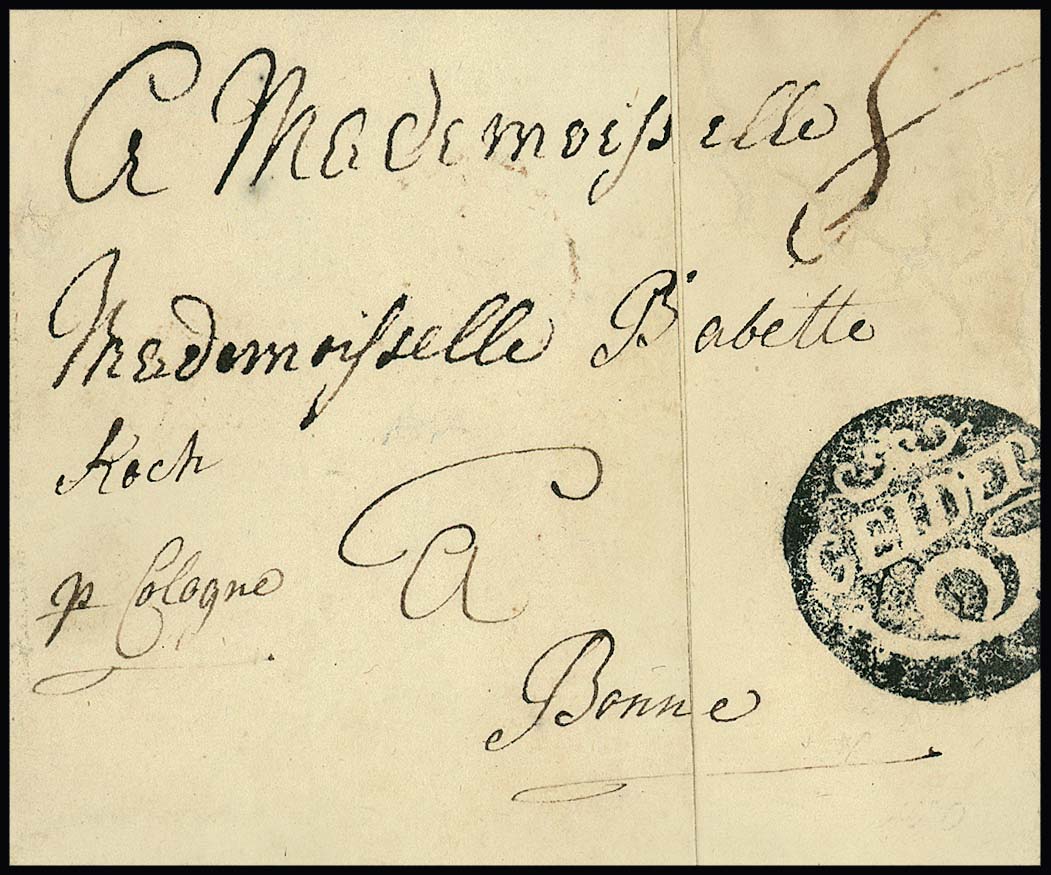 A Mademoisselle
Mademoisselle Babette
Koch
p Cologne
A
Bonne
GELDER